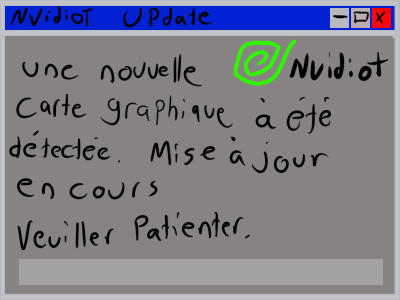 Nvidiot Update
une nouvelle Nvidiot
carte graphique à été
détectée. Mise à jour
en cours
Veuiller Patienter.